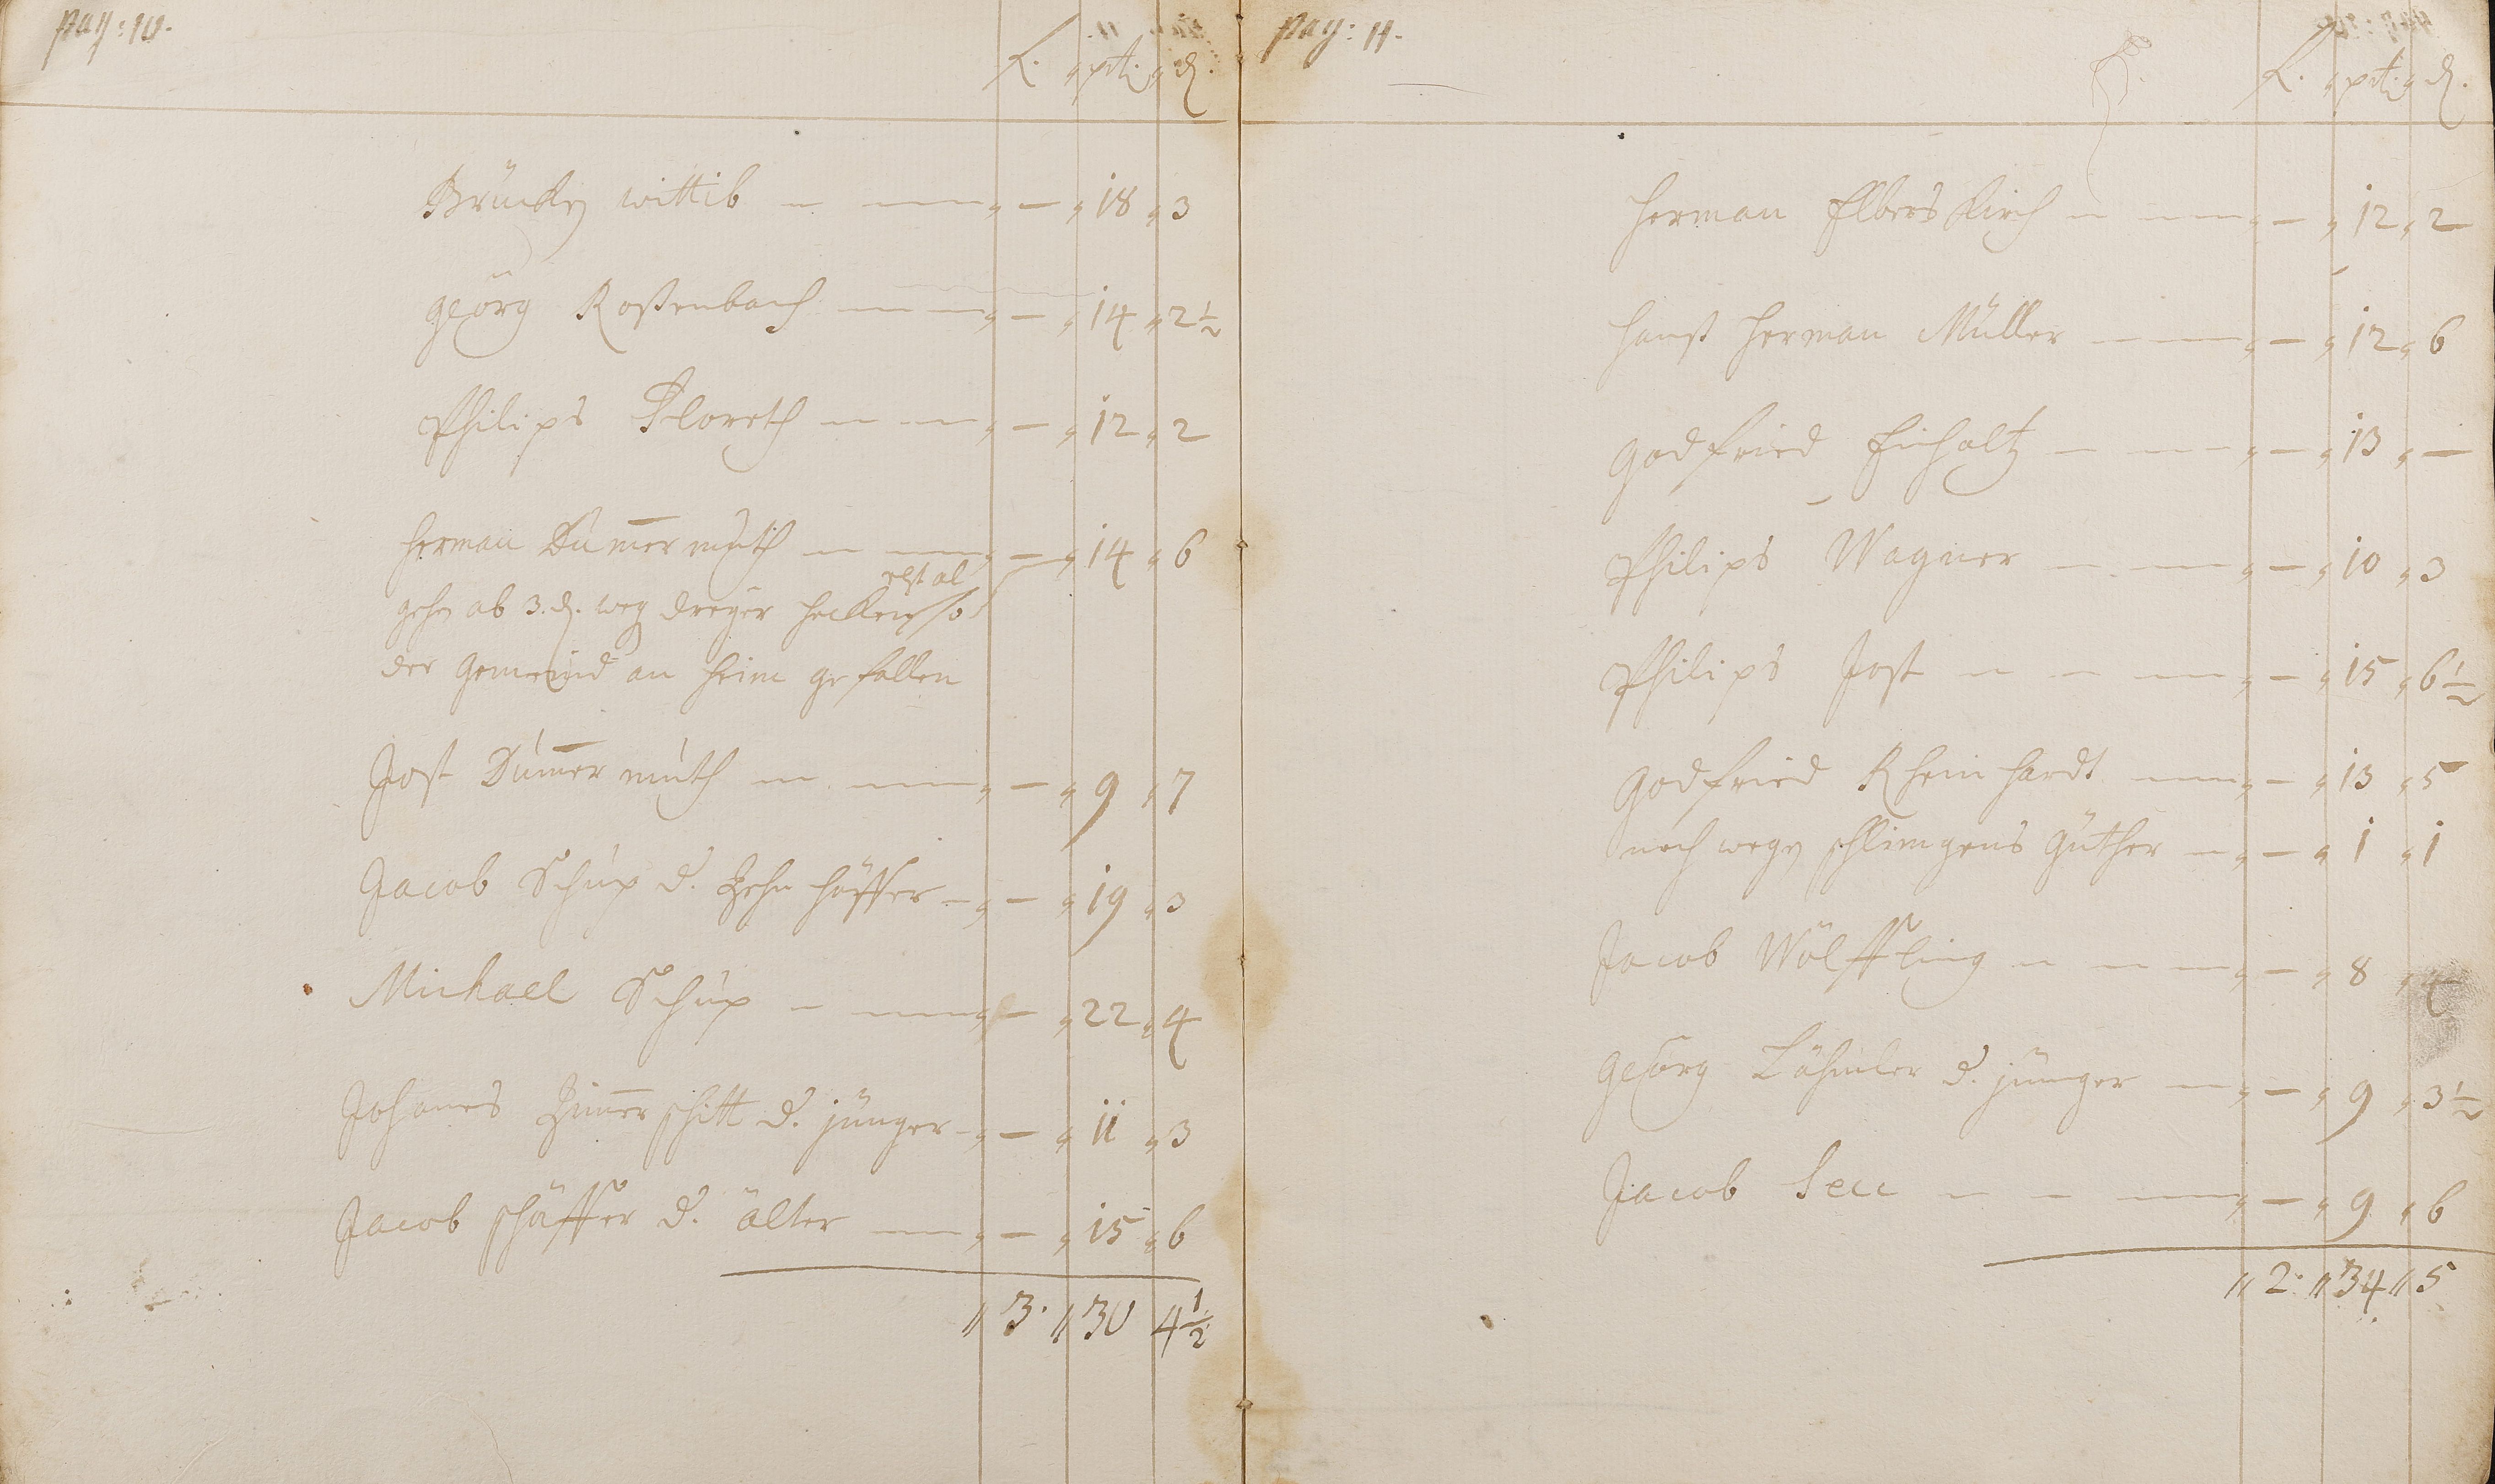 pag: 10.
R. pet. d.
Brücken wittib — 18 3
Georg Roßenbach — 14 2½
Philips Floreth — 12 2
Herman Dumermuth — 14 6
gehen ab 3. d. weg dreyer hecken so
der Gemeind an heim gefallen
Jost Dumermuth — 9 7
Jacob Schup d. Zehnhöffer — 19 3
Michael Schup — 22 4
Johanes Zimerschitt d. jünger — 11 3
Jacob Schäffer d. älter — 15 6
3. 30 4½
pag: 11.
R. pet. d.
Herman Elberskirch — 12 2
Hanß Herman Müller — 12 6
Godfried Eicholtz — 13 —
Philips Wagner — 10 3
Philips Jost — 15 6½
Godfried Rheinhardt — 13 5
noch wegen schlimgens Güther — 1 1
Jacob Wölffling — 8 4
Georg Löhmler d. jünger — 9 3½
Jacob Secc — 9 6
2. 34 5